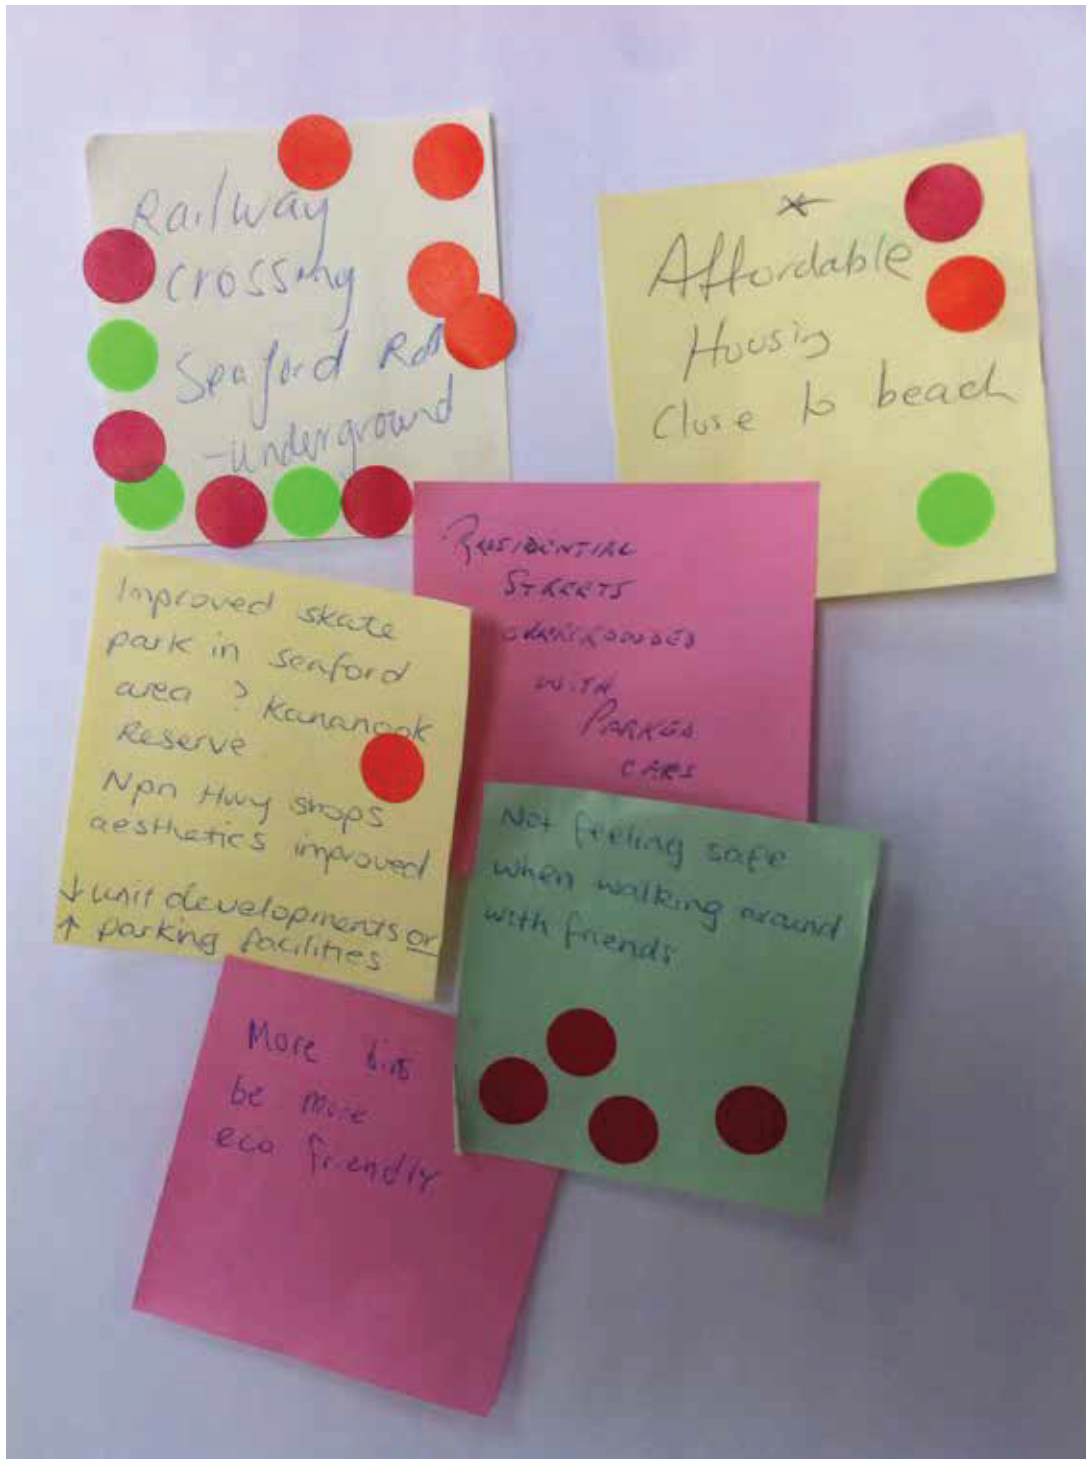 Railway
Crossing
Seaford
-underground
*
Affordable
Housing
Close to beach
RESIDENTIAL
STREETS
OVERCROWDED
WITH
PARKED
CARS
Improved skate
park in seaford
area ? Kananook
Reserve
Npn Hwy shops
aesthetics improved
↓ unit developments or
↑ parking facilities
Not feeling safe
when walking around
with friends
More bins
be more
eco friendly